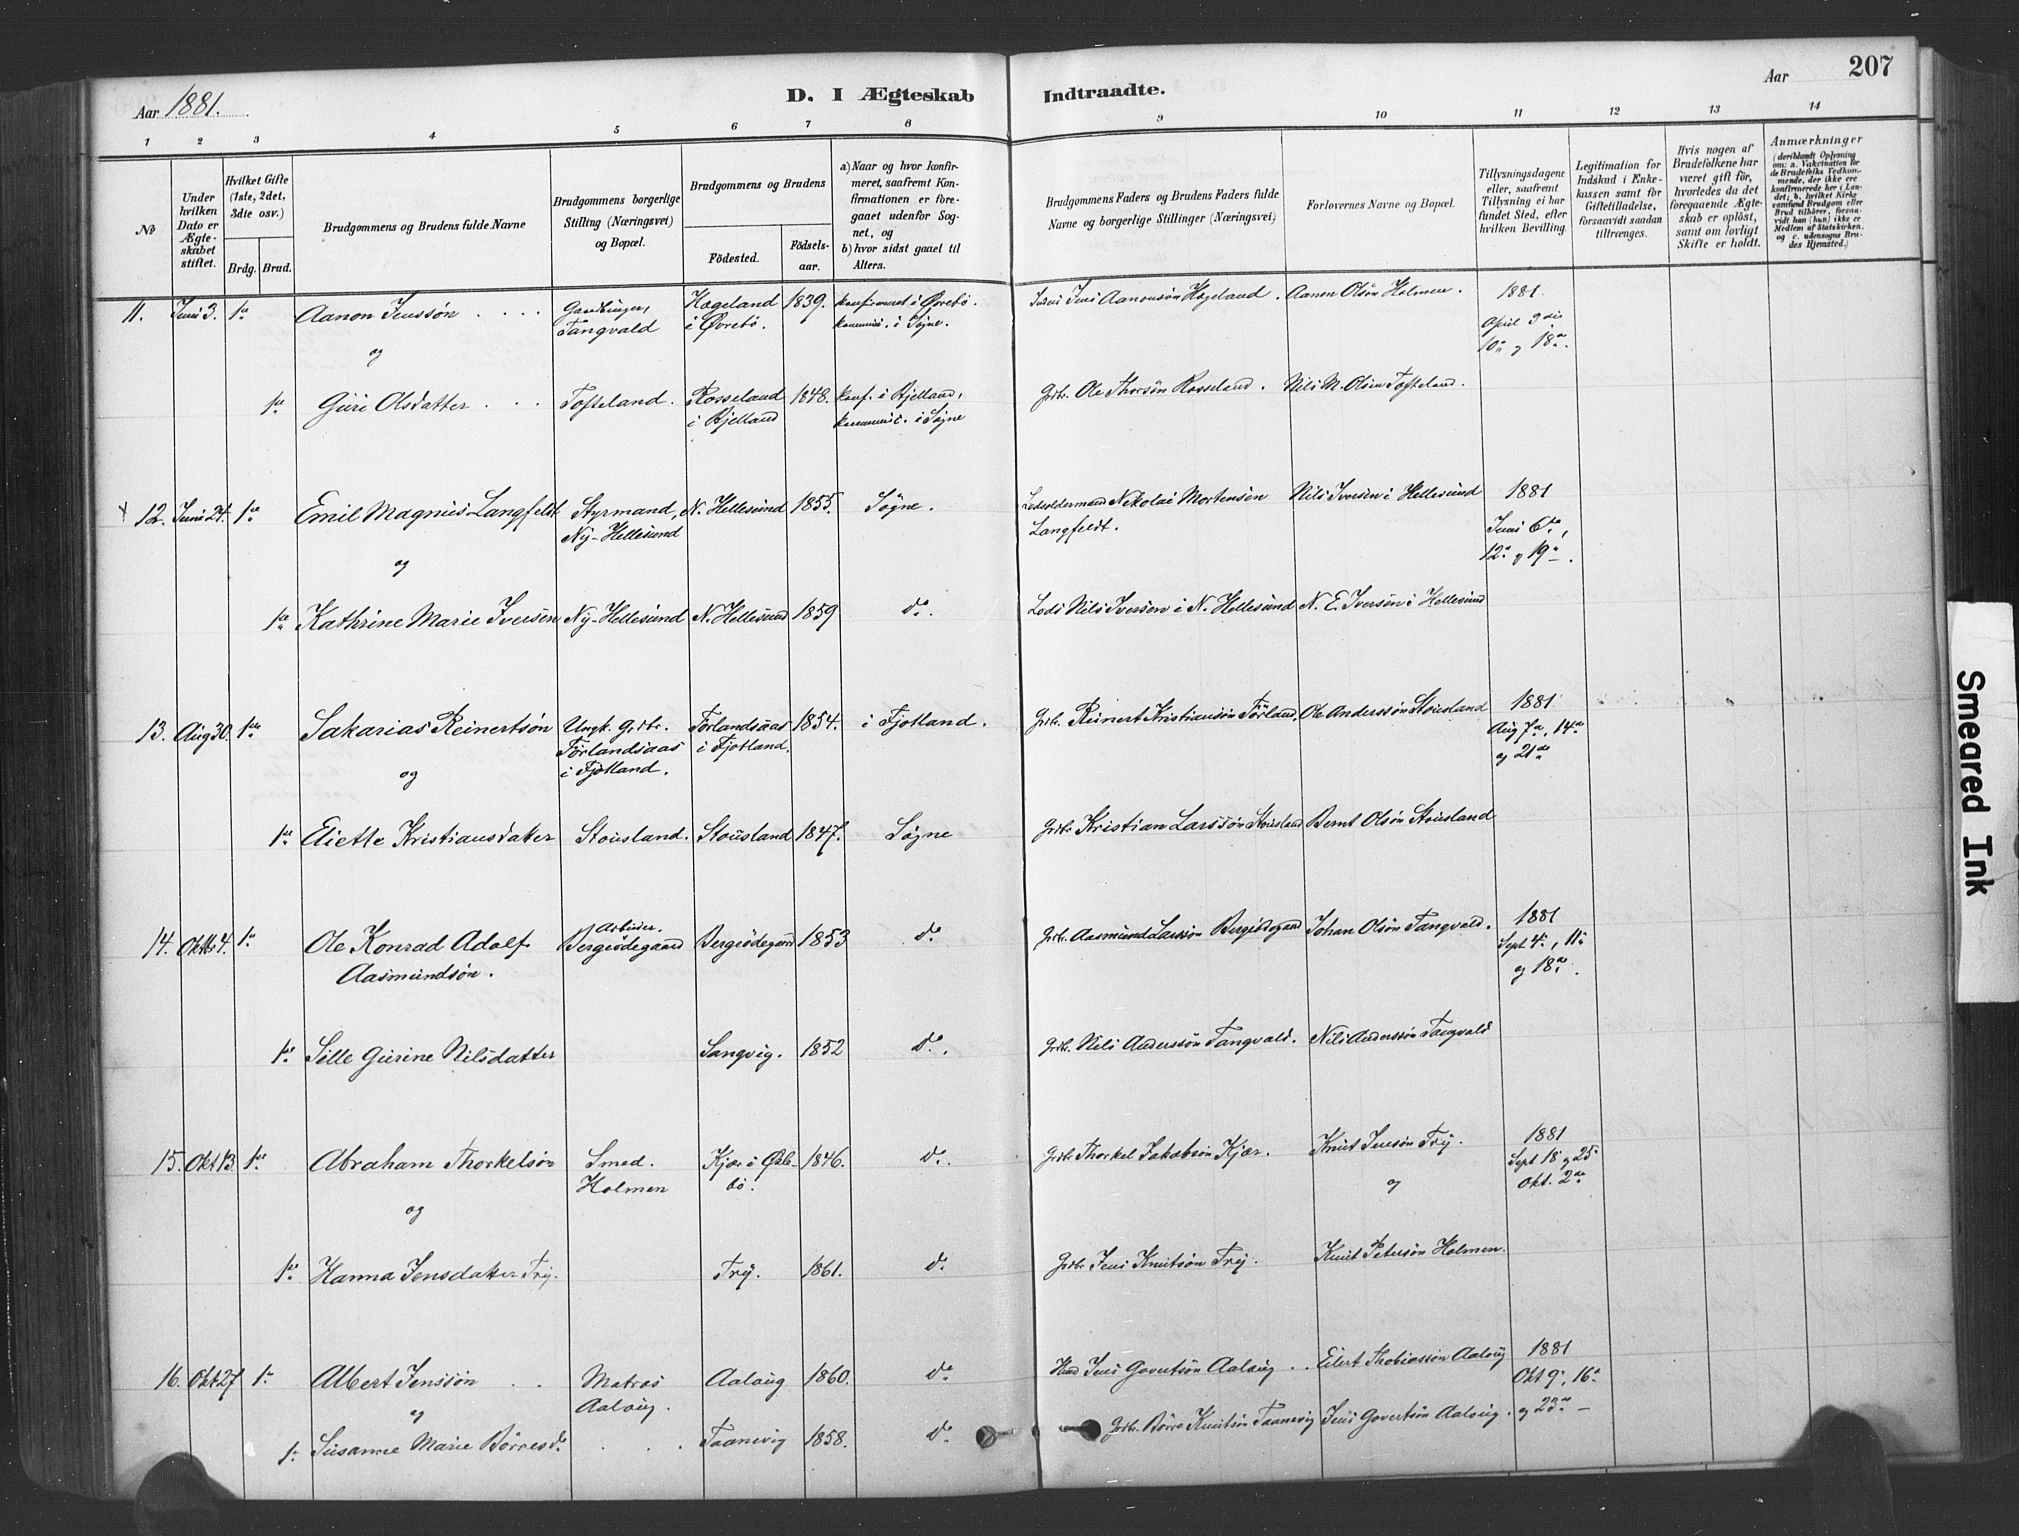 Aar 1881.
D. I Ægteskab Indtraadte.
Aar 207
1 2 3 4 5 6 7 8 9 10 11 12 13 14
No
Under hvilken Dato er Ægteskabet stiftet.
Hvilket Gifte (1ste, 2det, 3die osv.)
Brdg. Brud.
Brudgommens og Brudens fulde Navne
Brudgommens borgerlige Stilling (Næringsvei) og Bopæl.
Brudgommens og Brudens
Födested.
Födselsaar.
a) Naar og hvor konfirmeret, saafremt Konfirmationen er foregaaet udenfor Sognet, og
b) hvor sidst gaaet til Alters.
Brudgommens Faders og Brudens Faders fulde Navne og borgerlige Stillinger (Næringsvei)
Forlovernes Navne og Bopæl.
Tillysningsdagene eller, saafremt Tillysning ei har fundet Sted, efter hvilken Bevilling.
Legitimation for Indskud i Enkekassen samt for Giftetilladelse, forsaavidt saadan tiltrænges.
Hvis nogen af Brudefolkene har været gift før, hvorledes da det foregaaende Ægteskab er oplöst, samt om lovligt Skifte er holdt.
Anmærkninger (deriblandt Oplysning om: a. Vakcination for de Brudefolks Vedkommende, der ikke ere konfirmerede her i Landet; b. hvilket Kirkesamfund Brudgom eller Brud tilhörer, forsaavidt han (hun) ikke er Medlem af Statskirken, og c. udensogns Brudes Hjemsted.)
11. Juni 3. 1ste Aanon Jenssön Gaardbruger, Hageland 1839. konfirmeret i Øvrebö. Jens Aanonsön Hageland. Aanon Olsön Holmen. 1881
Tangvald i Øvrebö. kommuni. i Søgne. April 3die
og 10de og 18de.
1ste Guri Olsdatter Tofteland. Rosseland 1848. konf. i Bjelland, Grdbr. Ole Thorsön Rosseland. Nils M. Olsen Tofteland.
i Bjelland kommunic. i Søgne
12. Juni 24. 1ste Emil Magnus Langfeldt Styrmand, N. Hellesund 1855. Søgne. Lodsoldermand Nikolai Mortensen Nils Iversen i Hellesund 1881
Ny-Hellesund Langfeldt. Juni 6te,
og 12te og 19de.
1ste Kathrine Marie Iversen Ny-Hellesund N. Hellesund 1859 do. Lods Nils Iversen i N. Hellesund N. E. Iversön i Hellesund
13. Aug 30. 1ste Sakarias Reinertsön Ungk. Grdbr. Förlandsaas 1854. i Fjotland. Grdbr. Reinert Kristiansön Förland Ole Anderssön Stousland 1881
Förlandsaas i Fjotland. Aug 7de, 14de
og i Fjotland. og 21de
1ste Eliette Kristiansdatter Stousland. Stousland 1847. Søgne Grdbr Kristian Larssön Stousland Bernt Olsön Stousland
14. Oktbr 4. 1ste Ole Konrad Adolf Arbeider. Bergeödegaard Bergeödegaard 1853 do. Grdbr. Aasmund Larssön Bergeödegaard Johan Olsön Tangvald. 1881
Aasmundsön. Sept 4de, 11te
og 18de.
1ste Sille Gurine Nilsdatter Langvig. 1852 do. Grdbr. Nils Anderssön Tangvald. Nils Anderssön Tangvald
15. Okt 13. 1ste Abraham Thorkelsön Smed. Kjær i Øslebö. 1846. do. Grdbr Thorkel Jakobsön Kjær. Knut Jensön Try. 1881
Holmen og Sept 18 og 25
og Okt. 2den
1ste Hanna Jensdatter Try. Try. 1861. do. Grdbr. Jens Knutsön Try. Knut Petersön Holmen.
16. Okt 27 1ste Albert Jenssön Matros Aalvig 1860. do Jens Govertsön Aalvig Eilert Thobiassön Aalvig 1881
og Aalvig. Okt 9de, 16de
1ste Susanne Marie Börresdr. Taanevig 1858. do Grdbr. Börre Knutsön Taanevig Jens Govertsön Aalvig. og 23de
Smeared Ink